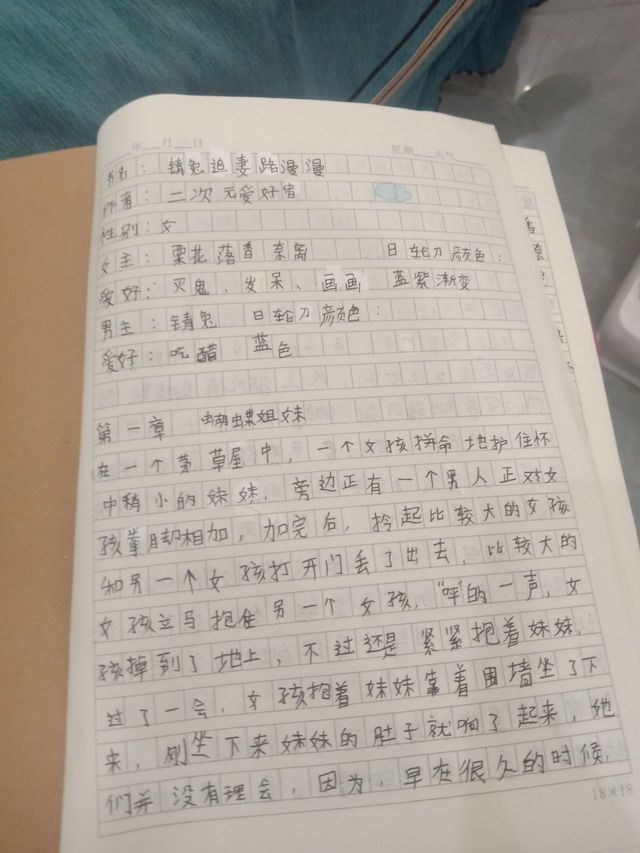 年 月 日 星期 天气
书名：锖兔追妻路漫漫
作者：二次元爱好者
性别：女
女主：栗花落香奈离 日轮刀颜色：
爱好：灭鬼、发呆、画画 蓝紫渐变
男主：锖兔 日轮刀颜色：
爱好：吃醋 蓝色
第一章 蝴蝶姐妹
在一个茅草屋中，一个女孩拼命地护住怀
中稍小的妹妹，旁边正有一个男人正对女
孩拳脚相加，加完后，拎起比较大的女孩
和另一个女孩打开门丢了出去，比较大的
女孩立马抱住另一个女孩，“呯”的一声，女
孩掉到了地上，不过还是紧紧抱着妹妹，
过了一会，女孩抱着妹妹靠着围墙坐了下
来，刚坐下来妹妹的肚子就响了起来，她
们并没有理会，因为，早在很久的时候，
18×18